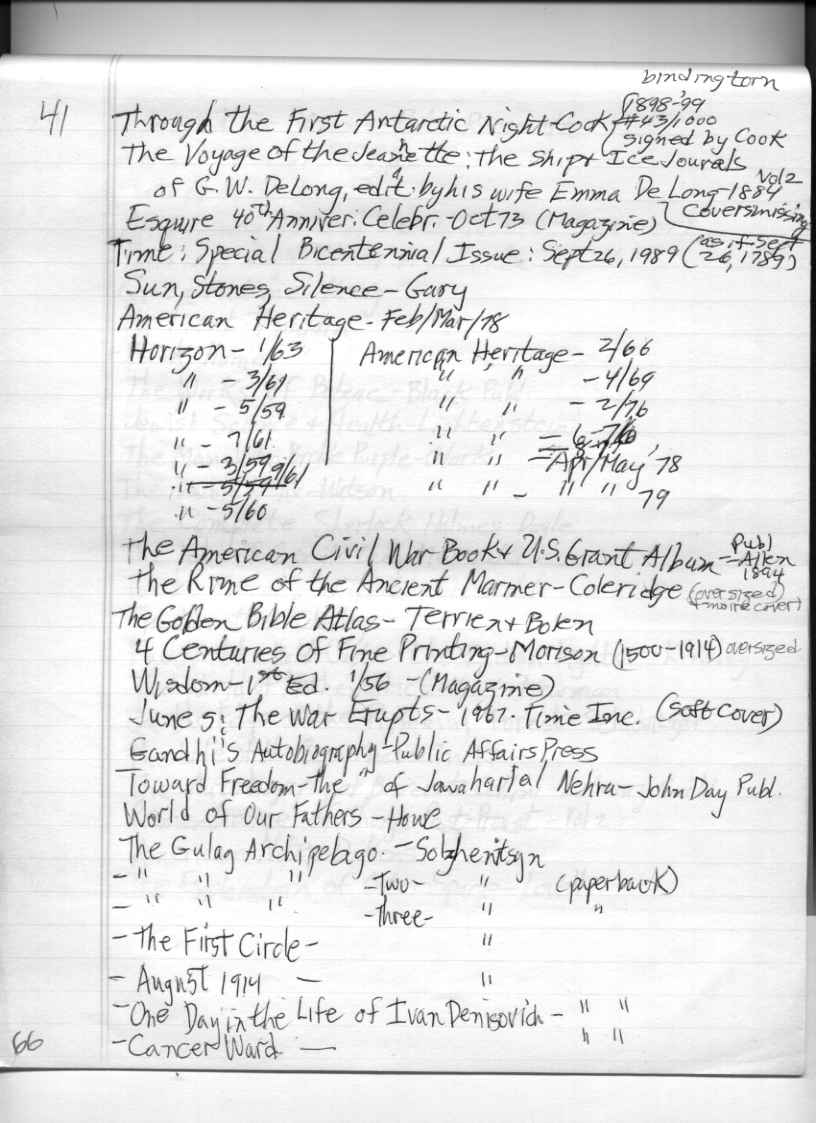 binding torn
41 Through the First Antarctic Night-Cook (1898-'99
#43/1000
signed by Cook
The Voyage of the Jeannette: The Ship & Ice Jourals
of G.W. DeLong, edit. by his wife Emma De Long-1884 Vol 2
covers missing
Esquire 40th Anniver. Celebr.-Oct 73 (Magazine)
Time: Special Bicentennial Issue: Sept 26, 1989 (as if Sept
26, 1789)
Sun, Stones, Silence - Gary
American Heritage - Feb/Mar/78
Horizon - 1/63
" - 3/61
" - 5/59
" - 7/61
" - 3/59 9/61
" - 5/59
" - 5/60
American Heritage - 2/66
" " - 4/69
" " - 2/76
" "
" " - Apr/May '78
" " - " " 79
The American Civil War Book & U.S. Grant Album - Publ
Allen
1894
The Rime of the Ancient Marmer - Coleridge (oversized
+ moire cover)
The Golden Bible Atlas - Terrien & Bolen
4 Centuries of Fine Printing - Morison (1500-1914) oversized
Wisdom - 1st Ed. 1/56 - (Magazine)
June 5: The War Erupts - 1967. Time Inc. (Soft Cover)
Gandhi's Autobiography - Public Affairs Press
Toward Freedom - the " of Jawaharlal Nehru - John Day Publ.
World of Our Fathers - Howe
The Gulag Archipelago. - Solzhenitsyn
- " " " - Two - " (paperback)
- " " " - Three - " "
- The First Circle - "
- August 1914 - "
- One Day in the Life of Ivan Denisovich - " "
66 - Cancer Ward - " "